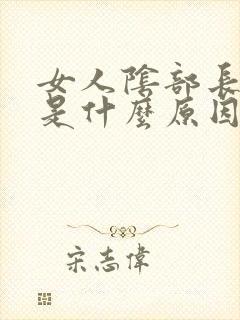 女人陰部長
是什麼原因
宋志偉